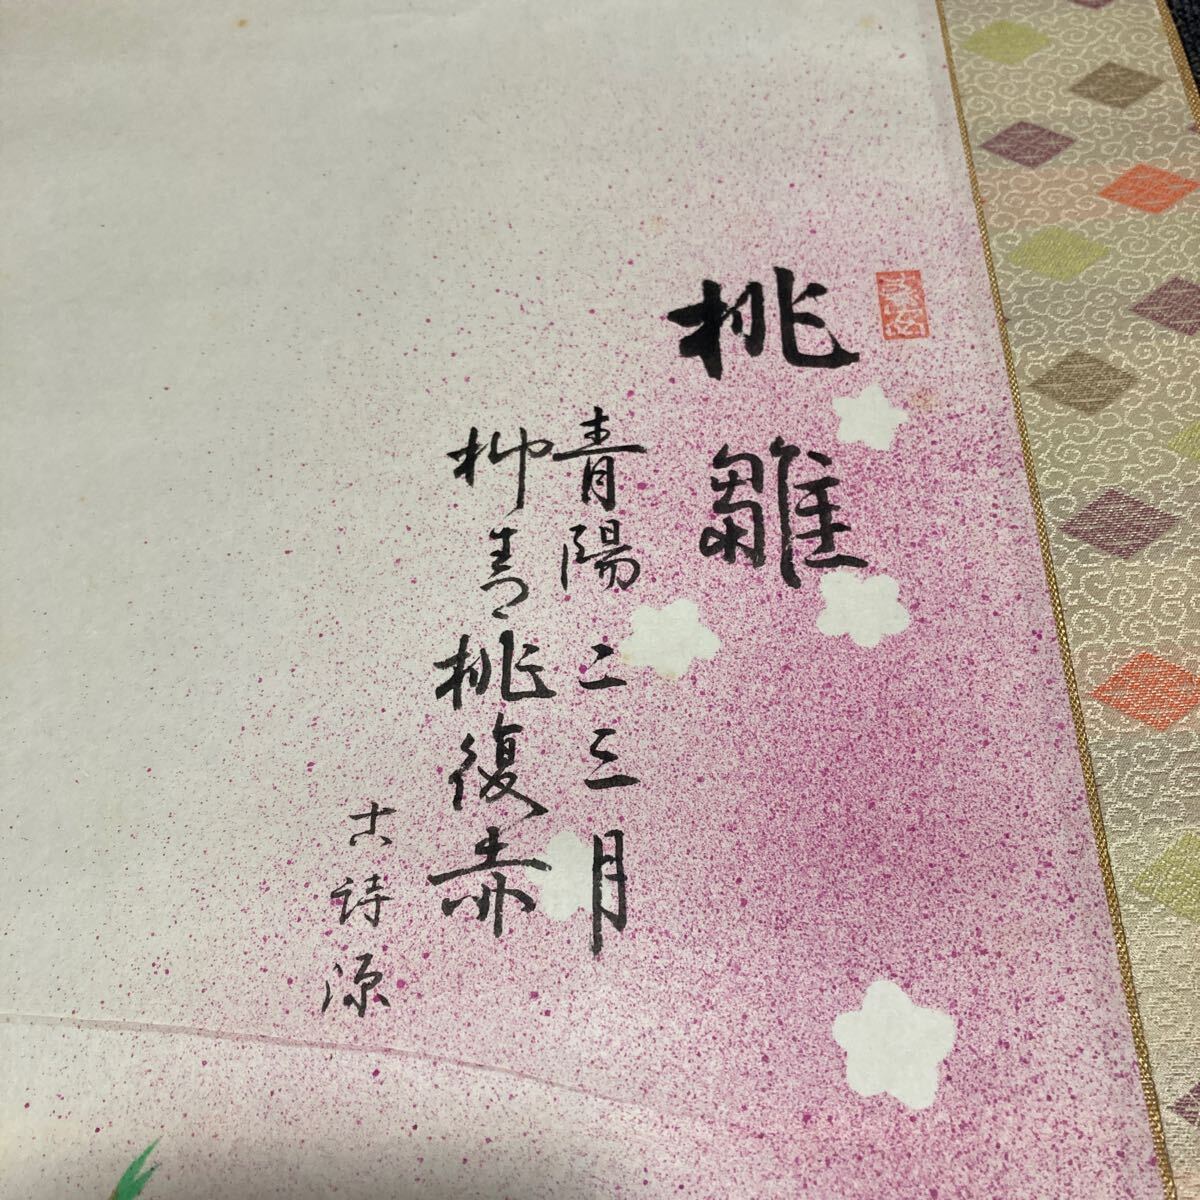 桃雛
青陽二三月
柳青桃復赤
古詩源